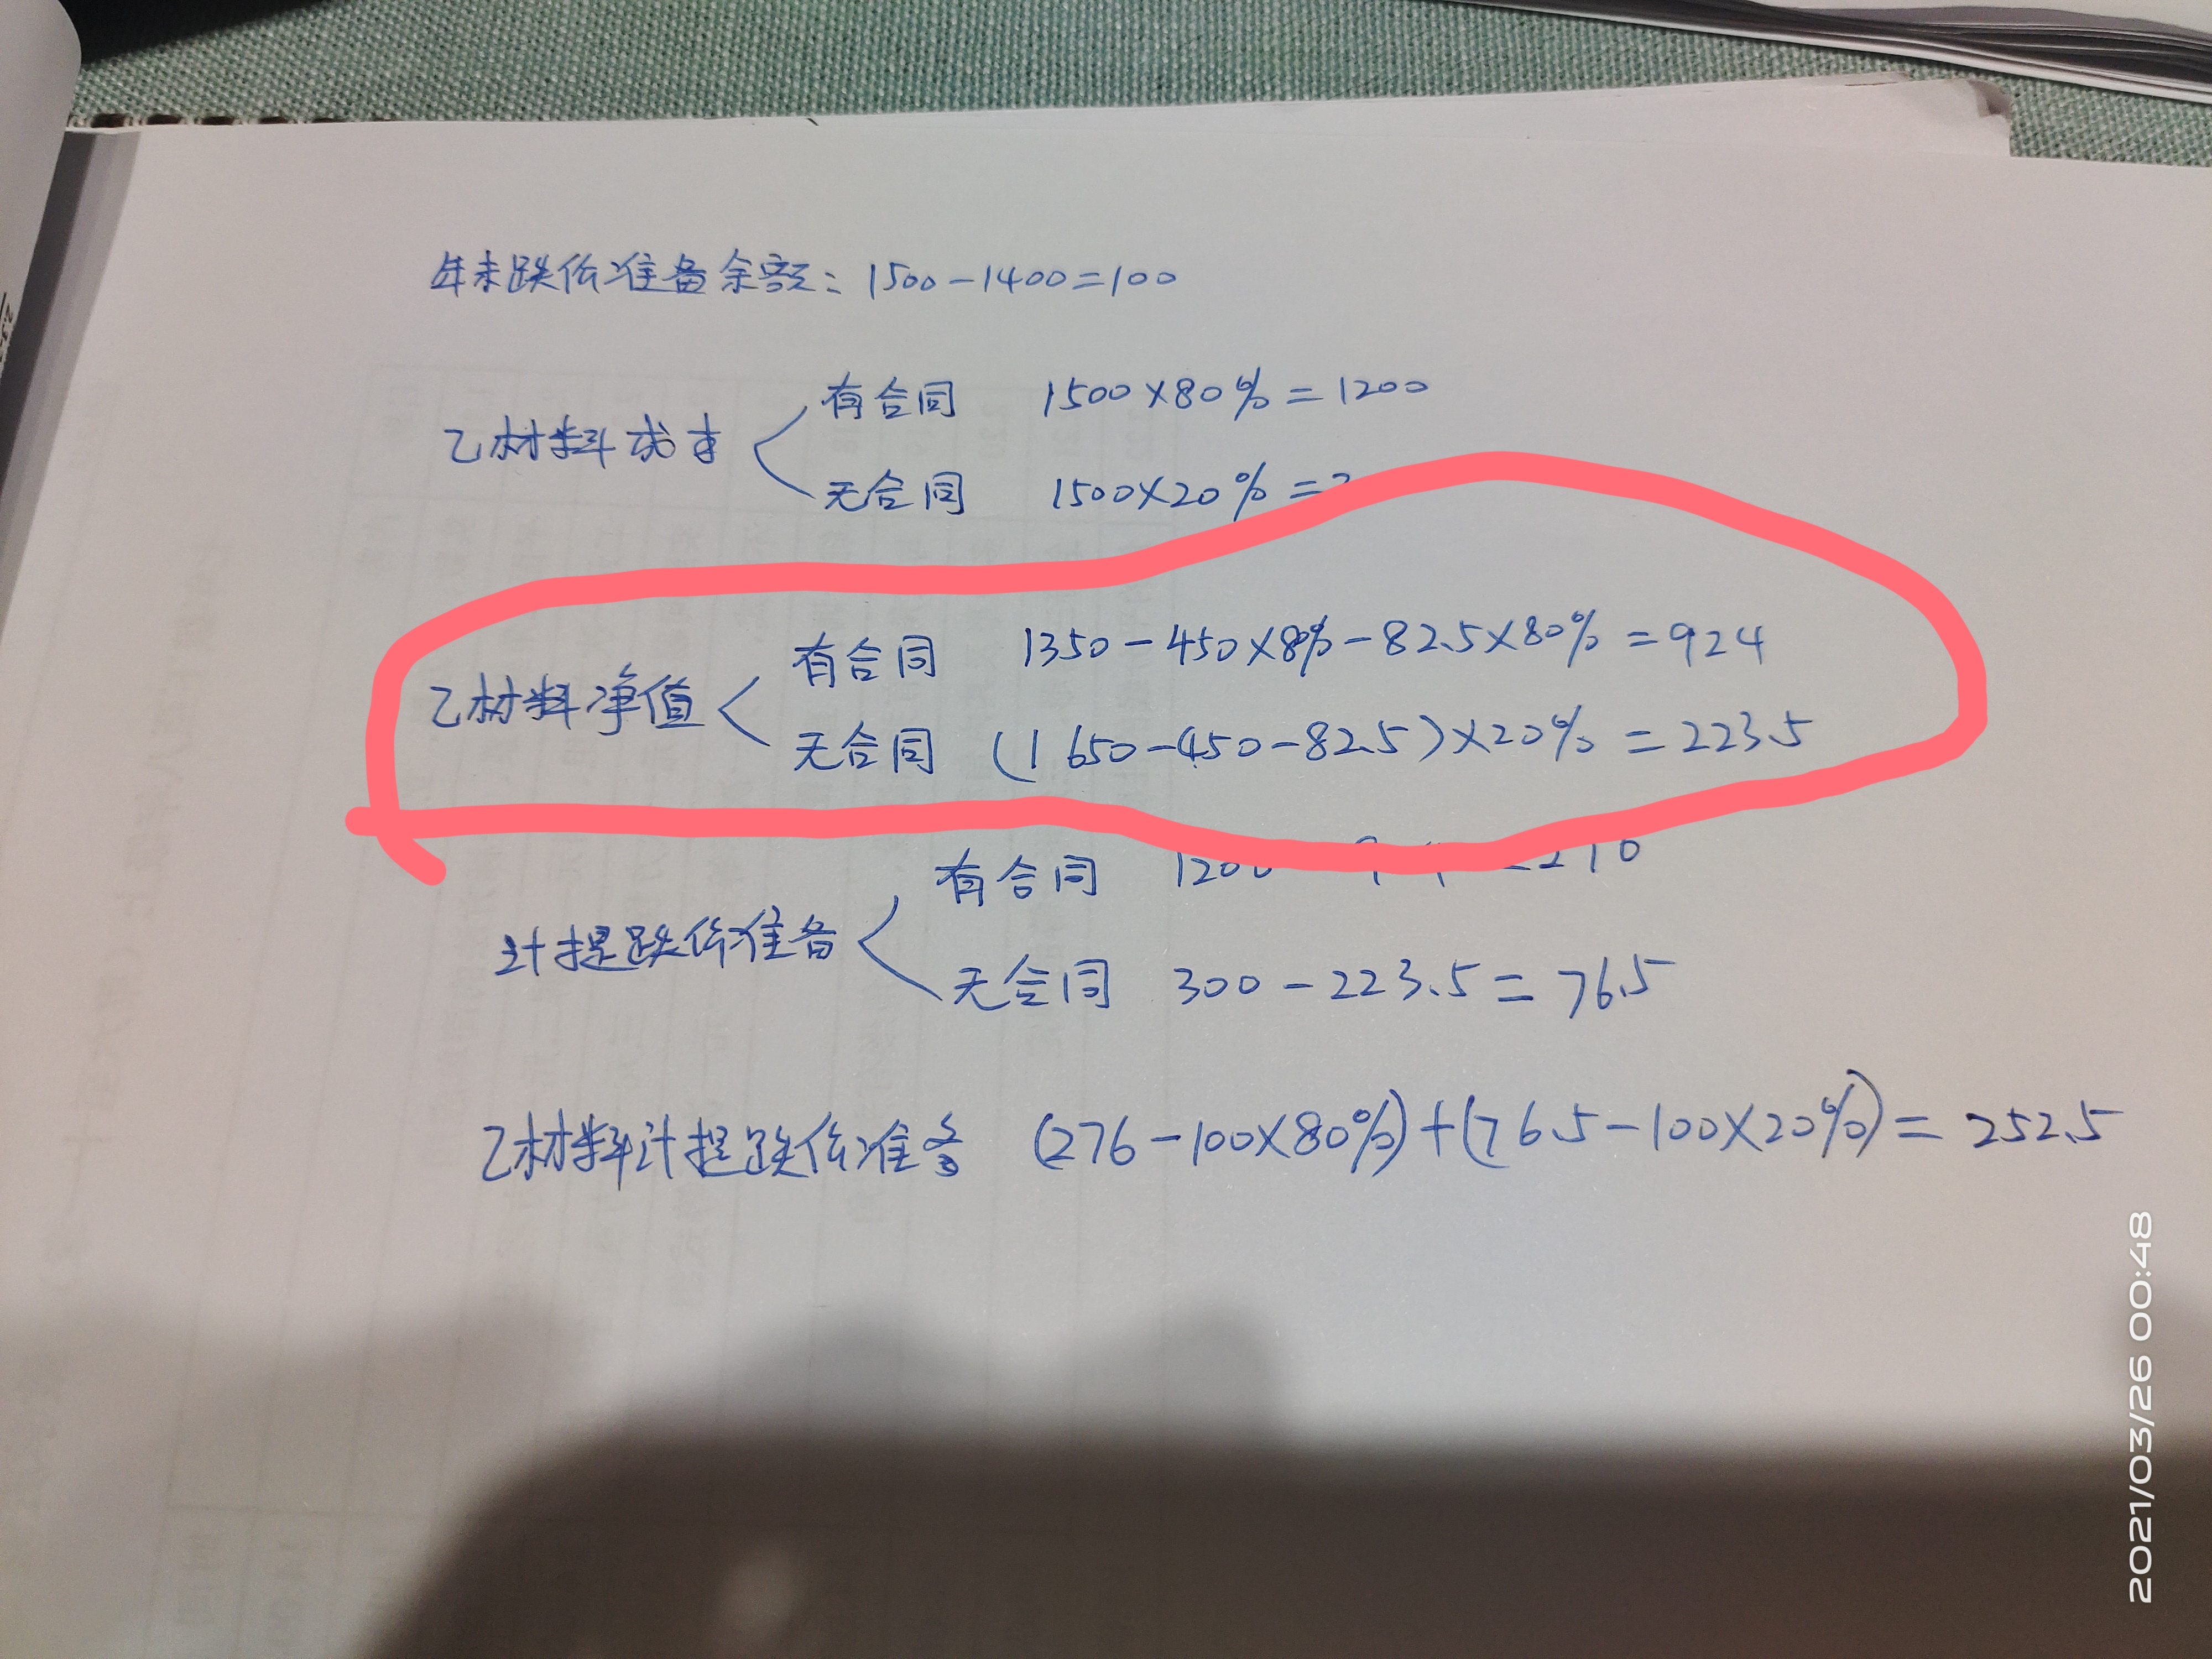 年末跌价准备余额：1500-1400=100
乙材料成本
有合同 1500×80%=1200
无合同 1500×20%=
乙材料净值
有合同 1350-450×8%-82.5×80%=924
无合同 (1650-450-82.5)×20%=223.5
计提跌价准备
有合同
无合同 300-223.5=76.5
乙材料计提跌价准备 (276-100×80%)+(76.5-100×20%)=252.5
2021/03/26 00:48